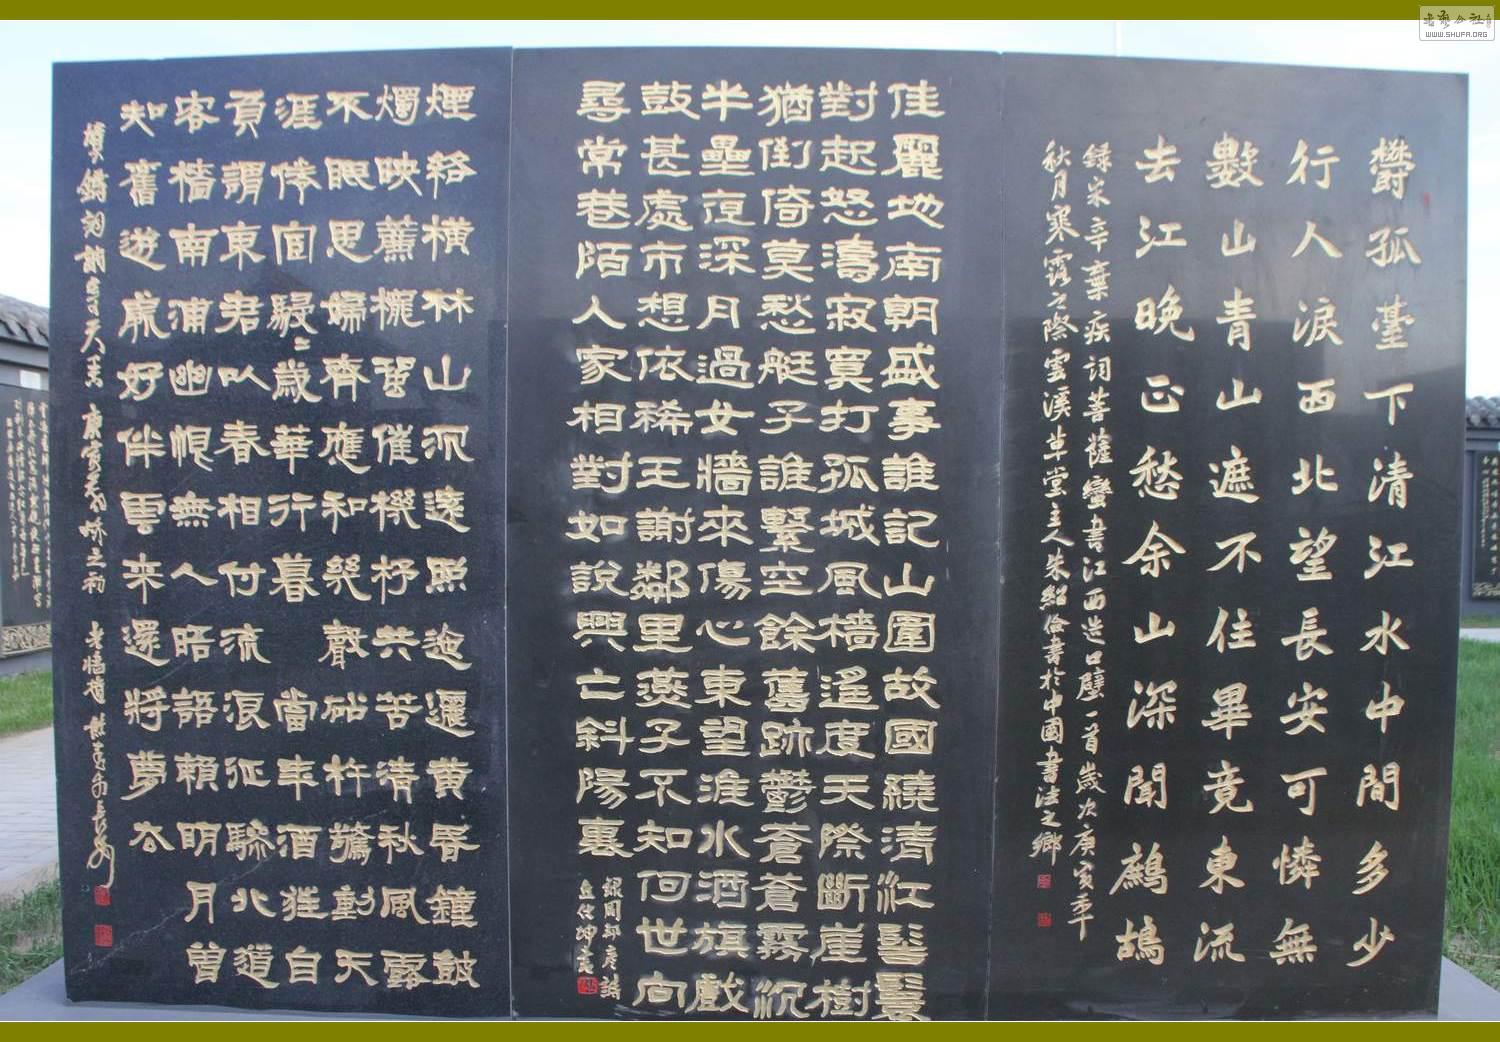 鬱孤臺下清江水中間多少
行人淚西北望長安可憐無
數山青山遮不住畢竟東流
去江晚正愁余山深聞鷓鴣
錄宋辛棄疾詞菩薩蠻書江西造口壁一首歲次庚寅年
秋月寒露之際雲溪草堂主人朱紹倫書於中國書法之鄉
佳麗地南朝盛事誰記山圍故國繞清江髻鬟
對起怒濤寂寞打孤城風檣遙度天際斷崖樹
猶倒倚莫愁艇子誰繫空餘舊跡鬱蒼蒼霧沉
半壘夜深月過女牆來傷心東望淮水酒旗戲
鼓甚處市想依稀王謝鄰里燕子不知何世向
尋常巷陌人家相對如說興亡斜陽裏
錄周邦彥詩
煙絡橫林山沉遠照迤邐黃昏鐘鼓
燭映簾櫳蛩催機杼共苦清秋風露
不眠思婦齊應和幾聲砧杵驚動天
涯倦宦駸々歲華行暮當年酒狂自
負謂東君以春相付流浪征驂北道
客檣南浦幽恨無人晤語賴明月曾
知舊遊處好伴雲來還將夢去
WWW.SHUFA.ORG